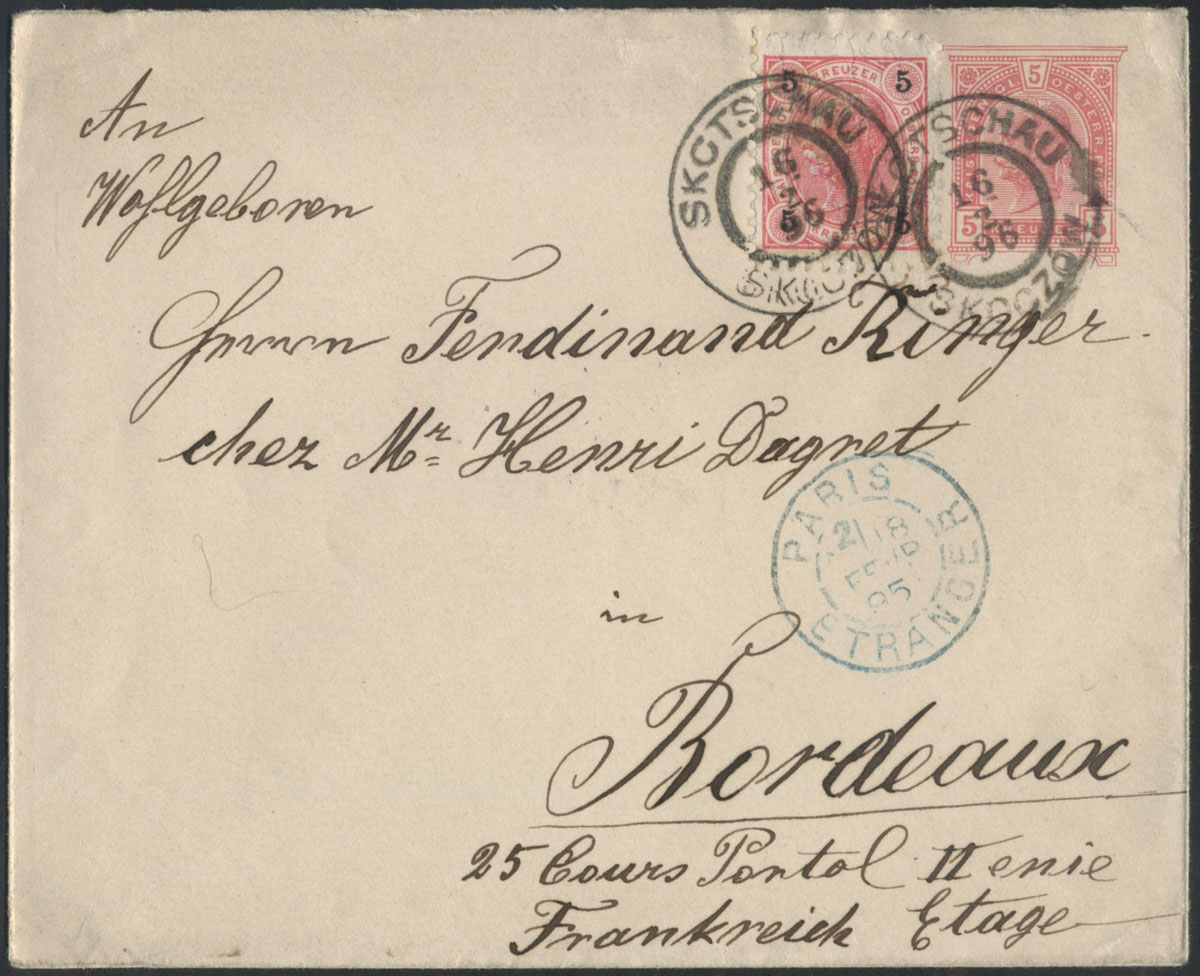 An
Wohlgeboren
Herrn Ferdinand Ringer
chez Mr Henri Dagret
in
Bordeaux
25 Cours Portal II enie
Frankreich Etage
5 KREUZER 5
5 5
5
5 KREUZER 5
SKOTSCHAU
16
2
96
SKOCZOW
SKOTSCHAU
16
2
96
SKOCZOW
PARIS
2 18
FEVR
ETRANGER